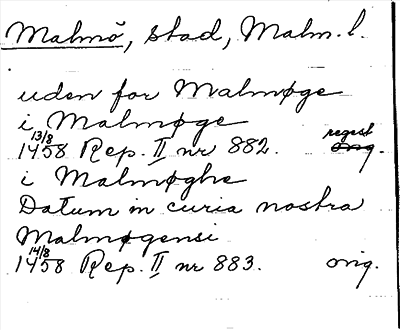 Malmö, stad, Malm. l.
uden for Malmøge
i Malmøge
13/8 regest
1458 Rep. II nr 882. orig.
i Malmøghe
Datum in curia nostra
Malmøgensi
14/8
1458 Rep. II nr 883. orig.